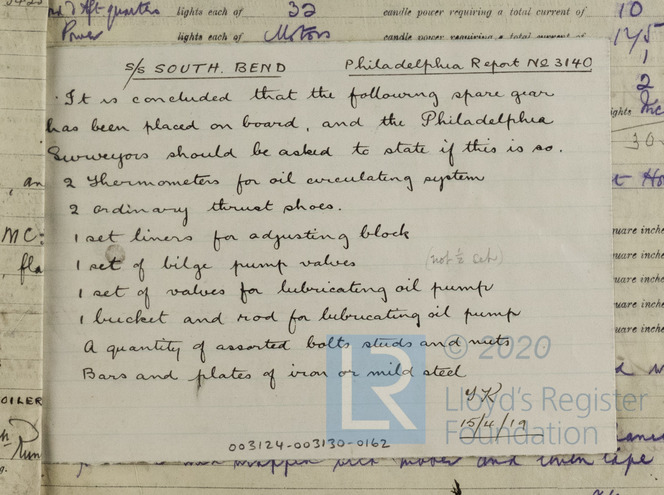 nd Aft quarters lights each of 32 candle power requiring a total current of 10
Power lights each of Motors candle power requiring a total current of 175
S/S SOUTH. BEND Philadelphia Report No 3140
It is concluded that the following spare gear
has been placed on board, and the Philadelphia
Surveyors should be asked to state if this is so.
2 Thermometers for oil circulating system
2 ordinary thrust shoes.
1 set liners for adjusting block
1 set of bilge pump valves (not ½ set)
1 set of valves for lubricating oil pump
1 bucket and rod for lubricating oil pump
A quantity of assorted bolts studs and nuts
Bars and plates of iron or mild steel
15/4/19
003124-003130-0162
LR © 2020
Lloyd's Register
Foundation
1
2
ights
30
, an
MC:
, fla
OILER
uare inche
uare inche
uare inche
uare inche
uare inche
and tape